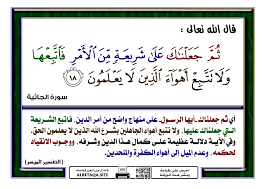 قال الله تعالى :
ثُمَّ جَعَلْنَاكَ عَلَىٰ شَرِيعَةٍ مِّنَ الْأَمْرِ فَاتَّبِعْهَا
وَلَا تَتَّبِعْ أَهْوَاءَ الَّذِينَ لَا يَعْلَمُونَ ١٨
سورة الجاثية
أي ثم جعلناك -أيها الرسول- على منهاج واضح من أمر الدين، فاتبع الشريعة
التي جعلناك عليها، ولا تتبع أهواء الجاهلين بشرع الله الذين لا يعلمون الحق.
وفي الآية دلالة عظيمة على كمال هذا الدين وشرفه، ووجوب الانقياد
لحكمه، وعدم الميل إلى أهواء الكفرة والملحدين.
[ التفسير الميسر ]
ALBETAQA.SITE